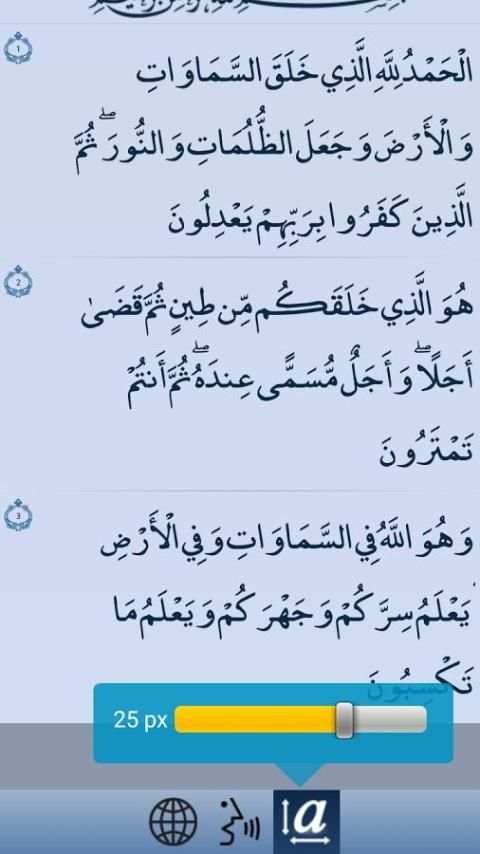 1
الْحَمْدُ لِلَّهِ الَّذِي خَلَقَ السَّمَاوَاتِ
وَالْأَرْضَ وَجَعَلَ الظُّلُمَاتِ وَالنُّورَ ۖ ثُمَّ
الَّذِينَ كَفَرُوا بِرَبِّهِمْ يَعْدِلُونَ
2
هُوَ الَّذِي خَلَقَكُم مِّن طِينٍ ثُمَّ قَضَىٰ
أَجَلًا ۖ وَأَجَلٌ مُّسَمًّى عِندَهُ ۖ ثُمَّ أَنتُمْ
تَمْتَرُونَ
3
وَهُوَ اللَّهُ فِي السَّمَاوَاتِ وَفِي الْأَرْضِ
يَعْلَمُ سِرَّكُمْ وَجَهْرَكُمْ وَيَعْلَمُ مَا
تَكْسِبُونَ
25 px
a